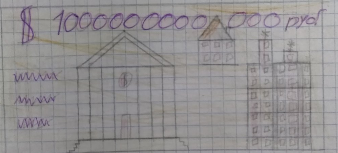 $ 1000000000 000 руб
$